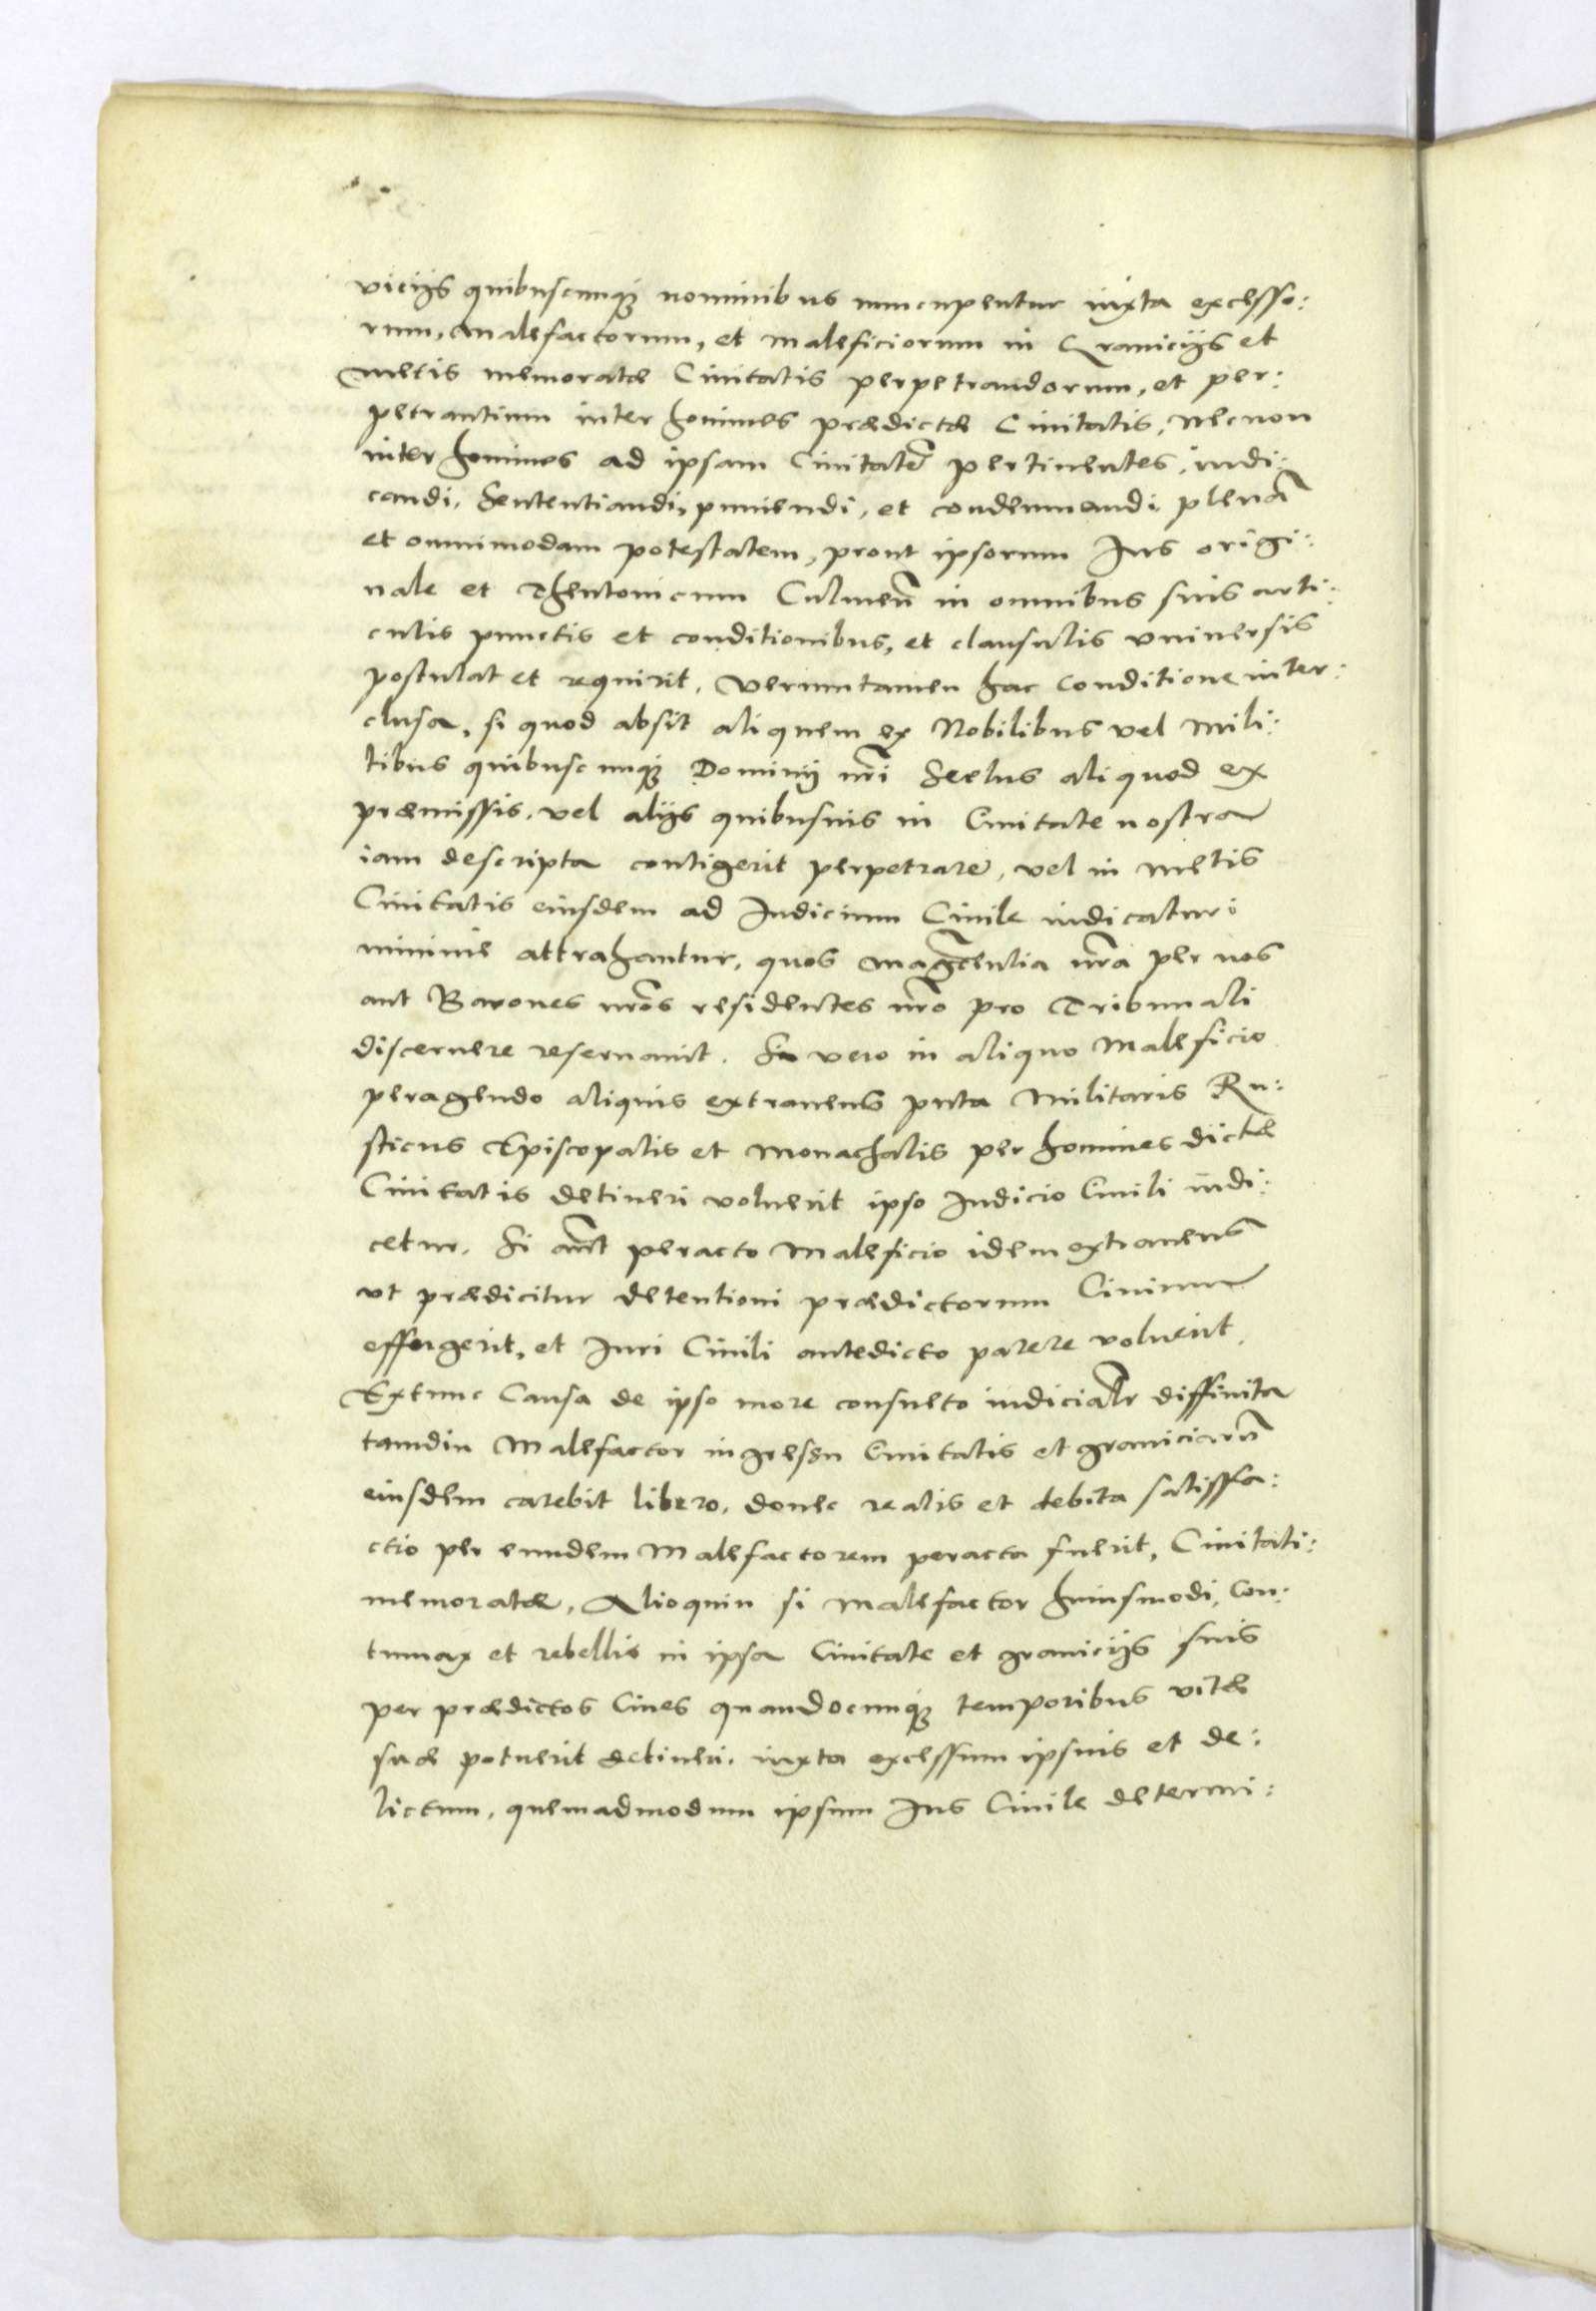 vicijs quibuscunq; nominibus nuncupentur iuxta excesso:
rum, Malefactorum, et maleficiorum in Granicijs et
metis memoratæ Ciuitatis perpetrandorum, et per:
petrantium inter homines prædictæ Ciuitatis, necnon
inter homines ad ipsam Ciuitatē pertinentes, iudi:
candi, Sententiandi, puniendi, et condemnandi plenā
et omnimodam potestatem, prout ipsorum Ius origi:
nale et Theutonicum Culmeñ in omnibus suis arti:
culis punctis et conditionibus, et clausulis vniuersis
postulat et requirit, Veruntamen hac conditione inter:
clusa, si quod absit aliquem ex Nobilibus vel Mili:
tibus quibuscunq; Dominij nr̄i Scelus aliquod ex
præmissis, vel alijs quibusuis in Ciuitate nostra
iam descripta contigerit perpetrare, vel in Metis
Ciuitatis eiusdem ad Iudicium Ciuile iudicaturi
minime attrahantur, quos Magc̄entia nr̄a per nos
aut Barones nr̄os residentes nr̄o pro Tribunali
discernere reseruauit. Si vero in aliquo Maleficio
peragendo aliquis extraneus puta Militaris Ru:
sticus Episcopalis et Monachalis per homines dictæ
Ciuitatis detineri voluerit ipso Iudicio Ciuili iudi:
cetur. Si aūt peracto Maleficio idem extraneus
vt prædicitur detentioni prædictorum Ciuium
effugerit, et Iuri Ciuili antedicto parere voluerit,
Extunc Causa de ipso more consueto iudicialr̄ diffinita
tamdiu Malefactor ingressu Ciuitatis et graniciarū
eiusdem carebit libero, donec realis et debita satisfa:
ctio per eundem Malefactorem peracta fuerit, Ciuitati:
memoratæ, Alioquin si Malefactor huiusmodi, Con:
tumax et rebellis in ipsa Ciuitate et granicijs suis
per prædictos Ciues quandocunq; temporibus vitæ
suæ potuerit detineri, iuxta excessum ipsius et de:
lictum, quemadmodum ipsum Ius Ciuile determi: